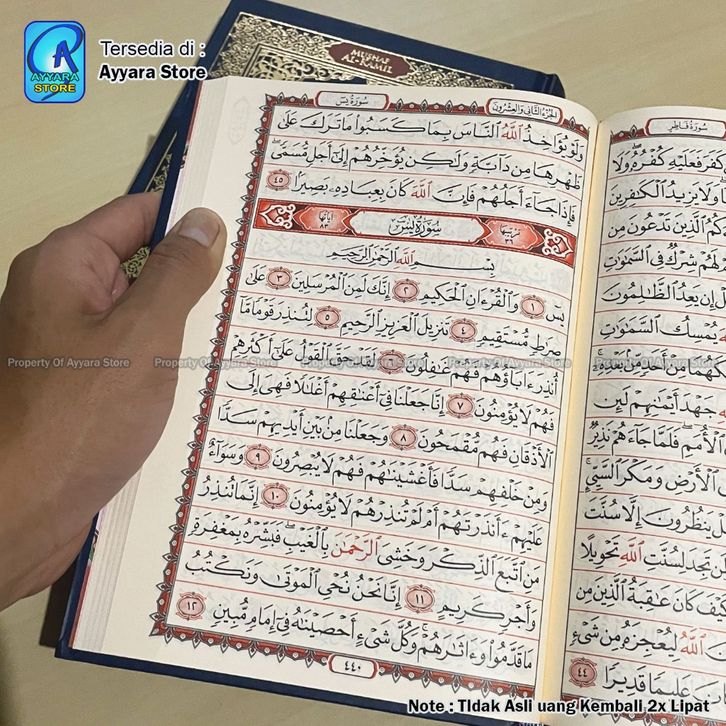 AYYARA
STORE
Tersedia di :
Ayyara Store
MUSHAF
AL-KAMIL
سورة يس
الجزء الثاني والعشرون
سورة فاطر
وَلَوْ يُؤَاخِذُ ٱللَّهُ ٱلنَّاسَ بِمَا كَسَبُوا۟ مَا تَرَكَ عَلَىٰ
ظَهْرِهَا مِن دَآبَّةٍ وَلَٰكِن يُؤَخِّرُهُمْ إِلَىٰٓ أَجَلٍ مُّسَمًّى ۖ
فَإِذَا جَآءَ أَجَلُهُمْ فَإِنَّ ٱللَّهَ كَانَ بِعِبَادِهِۦ بَصِيرًۢا ٤٥
ترتيبها ٣٦ سورة يس آياتها ٨٣
بِسْمِ ٱللَّهِ ٱلرَّحْمَٰنِ ٱلرَّحِيمِ
يسٓ ١ وَٱلْقُرْءَانِ ٱلْحَكِيمِ ٢ إِنَّكَ لَمِنَ ٱلْمُرْسَلِينَ ٣ عَلَىٰ
صِرَٰطٍ مُّسْتَقِيمٍ ٤ تَنزِيلَ ٱلْعَزِيزِ ٱلرَّحِيمِ ٥ لِتُنذِرَ قَوْمًا مَّآ
أُنذِرَ ءَابَآؤُهُمْ فَهُمْ غَٰفِلُونَ ٦ لَقَدْ حَقَّ ٱلْقَوْلُ عَلَىٰٓ أَكْثَرِهِمْ
فَهُمْ لَا يُؤْمِنُونَ ٧ إِنَّا جَعَلْنَا فِىٓ أَعْنَٰقِهِمْ أَغْلَٰلًا فَهِىَ إِلَى
ٱلْأَذْقَانِ فَهُم مُّقْمَحُونَ ٨ وَجَعَلْنَا مِنۢ بَيْنِ أَيْدِيهِمْ سَدًّا
وَمِنْ خَلْفِهِمْ سَدًّا فَأَغْشَيْنَٰهُمْ فَهُمْ لَا يُبْصِرُونَ ٩ وَسَوَآءٌ
عَلَيْهِمْ ءَأَنذَرْتَهُمْ أَمْ لَمْ تُنذِرْهُمْ لَا يُؤْمِنُونَ ١٠ إِنَّمَا تُنذِرُ
مَنِ ٱتَّبَعَ ٱلذِّكْرَ وَخَشِىَ ٱلرَّحْمَٰنَ بِٱلْغَيْبِ ۖ فَبَشِّرْهُ بِمَغْفِرَةٍ
وَأَجْرٍ كَرِيمٍ ١١ إِنَّا نَحْنُ نُحْىِ ٱلْمَوْتَىٰ وَنَكْتُبُ
مَا قَدَّمُوا۟ وَءَاثَٰرَهُمْ ۚ وَكُلَّ شَىْءٍ أَحْصَيْنَٰهُ فِىٓ إِمَامٍ مُّبِينٍ ١٢
٤٤٠
كَفَرَ فَعَلَيْهِ كُفْرُهُۥ ۖ وَلَا
وَلَا يَزِيدُ ٱلْكَٰفِرِينَ
ٱلَّذِينَ تَدْعُونَ مِن
لَهُمْ شِرْكٌ فِى ٱلسَّمَٰوَٰتِ
إِن يَعِدُ ٱلظَّٰلِمُونَ
يُمْسِكُ ٱلسَّمَٰوَٰتِ
مِنْ أَحَدٍ مِّنۢ بَعْدِهِۦٓ
جَهْدَ أَيْمَٰنِهِمْ لَئِن
ٱلْأُمَمِ ۖ فَلَمَّا جَآءَهُمْ نَذِيرٌ
ٱلْأَرْضِ وَمَكْرَ ٱلسَّيِّئِ ۚ
يَنظُرُونَ إِلَّا سُنَّتَ
تَجِدَ لِسُنَّتِ ٱللَّهِ تَحْوِيلًا
كَيْفَ كَانَ عَٰقِبَةُ ٱلَّذِينَ مِن
ٱللَّهُ لِيُعْجِزَهُۥ مِن شَىْءٍ
عَلِيمًا قَدِيرًا ٤٤
Property Of Ayyara Store Property Of Ayyara Store Property Of Ayyara Store Property Of Ayyara Store Property Of Ayyara Store
Note : Tidak Asli uang Kembali 2x Lipat